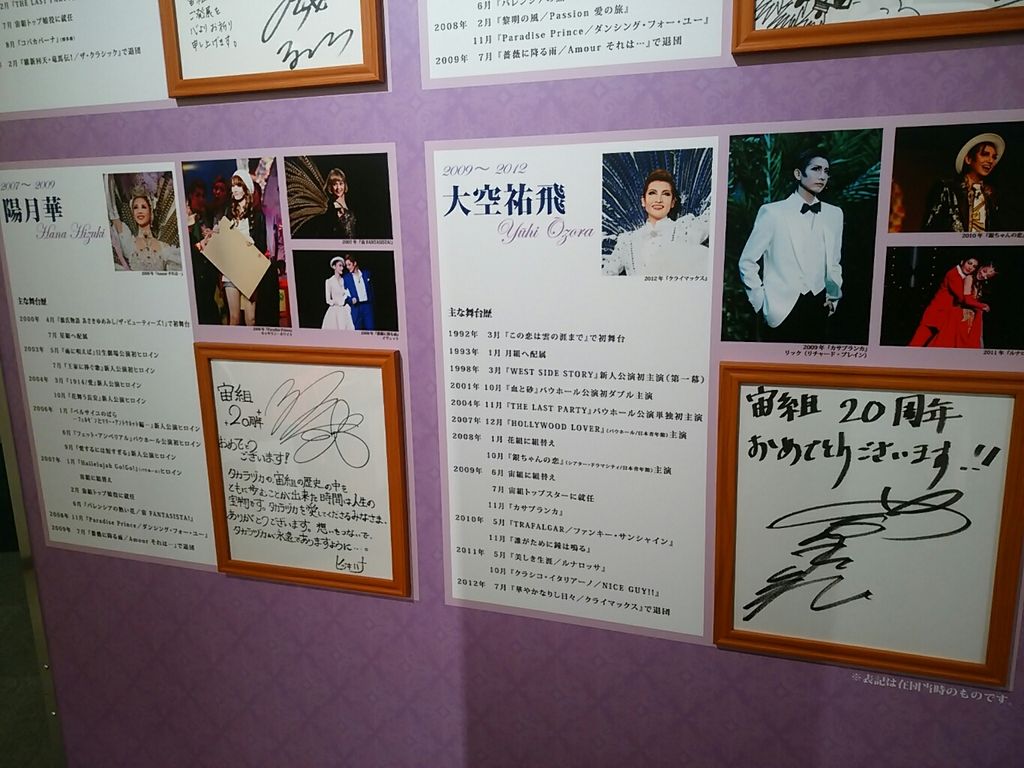 ご発展を
心よりお祈り
申し上げます。
7月 宙組トップ娘役に就任
8月『コパカバーナ』
2月『維新回天・竜馬伝！/ザ・クラシック』で退団
2008年 2月『黎明の風／Passion 愛の旅』
11月『Paradise Prince／ダンシング・フォー・ユー』
2009年 7月『薔薇に降る雨／Amour それは…』で退団
2007～2009
陽月華
Hana Hizuki
主な舞台歴
2000年 4月『源氏物語 あさきゆめみし/ザ・ビューティーズ！』で初舞台
7月 星組へ配属
2002年 5月『雨に唄えば』日生劇場公演初ヒロイン
7月『王家に捧ぐ歌』新人公演初ヒロイン
2004年 3月『1914/愛』新人公演ヒロイン
10月『花舞う長安』新人公演ヒロイン
2006年 1月『ベルサイユのばら
－フェルゼンとマリー・アントワネット編－』新人公演ヒロイン
6月『フェット・アンペリアル』バウホール公演初ヒロイン
9月『愛するには短すぎる』新人公演ヒロイン
2007年 1月『Hallelujah Go!Go!』ヒロイン
宙組に組替え
2月 宙組トップ娘役に就任
6月『バレンシアの熱い花/宙 FANTASISTA!』
2008年 11月『Paradise Prince/ダンシング・フォー・ユー』
2009年 7月『薔薇に降る雨/Amour それは…』で退団
宙組
20周年
おめでとう
ございます！
タカラヅカの宙組の歴史の中を
ともに歩むことが出来た時間は人生の
宝物です。タカラヅカを愛してくださるみなさま、
ありがとうございます。想いをつないで、
タカラヅカが永遠でありますように…。
2009～2012
大空祐飛
Yuhi Ozora
2012年『クライマックス』
主な舞台歴
1992年 3月『この恋は雲の涯まで』で初舞台
1993年 1月 月組へ配属
1998年 3月『WEST SIDE STORY』新人公演初主演（第一幕）
2001年 10月『血と砂』バウホール公演初ダブル主演
2004年 11月『THE LAST PARTY』バウホール公演単独初主演
2007年 12月『HOLLYWOOD LOVER』（バウホール/日本青年館）主演
2008年 1月 花組に組替え
10月『銀ちゃんの恋』（シアター・ドラマシティ/日本青年館）主演
2009年 6月 宙組に組替え
7月 宙組トップスターに就任
11月『カサブランカ』
2010年 5月『TRAFALGAR／ファンキー・サンシャイン』
11月『誰がために鐘は鳴る』
2011年 5月『美しき生涯／ルナロッサ』
10月『クラシコ・イタリアーノ／NICE GUY!!』
2012年 7月『華やかなりし日々／クライマックス』で退団
2009年『カサブランカ』
リック（リチャード・ブレイン）
2010年『銀ちゃんの恋』
2011年『ルナロ
宙組 20周年
おめでとうございます!!
※表記は在団当時のものです。